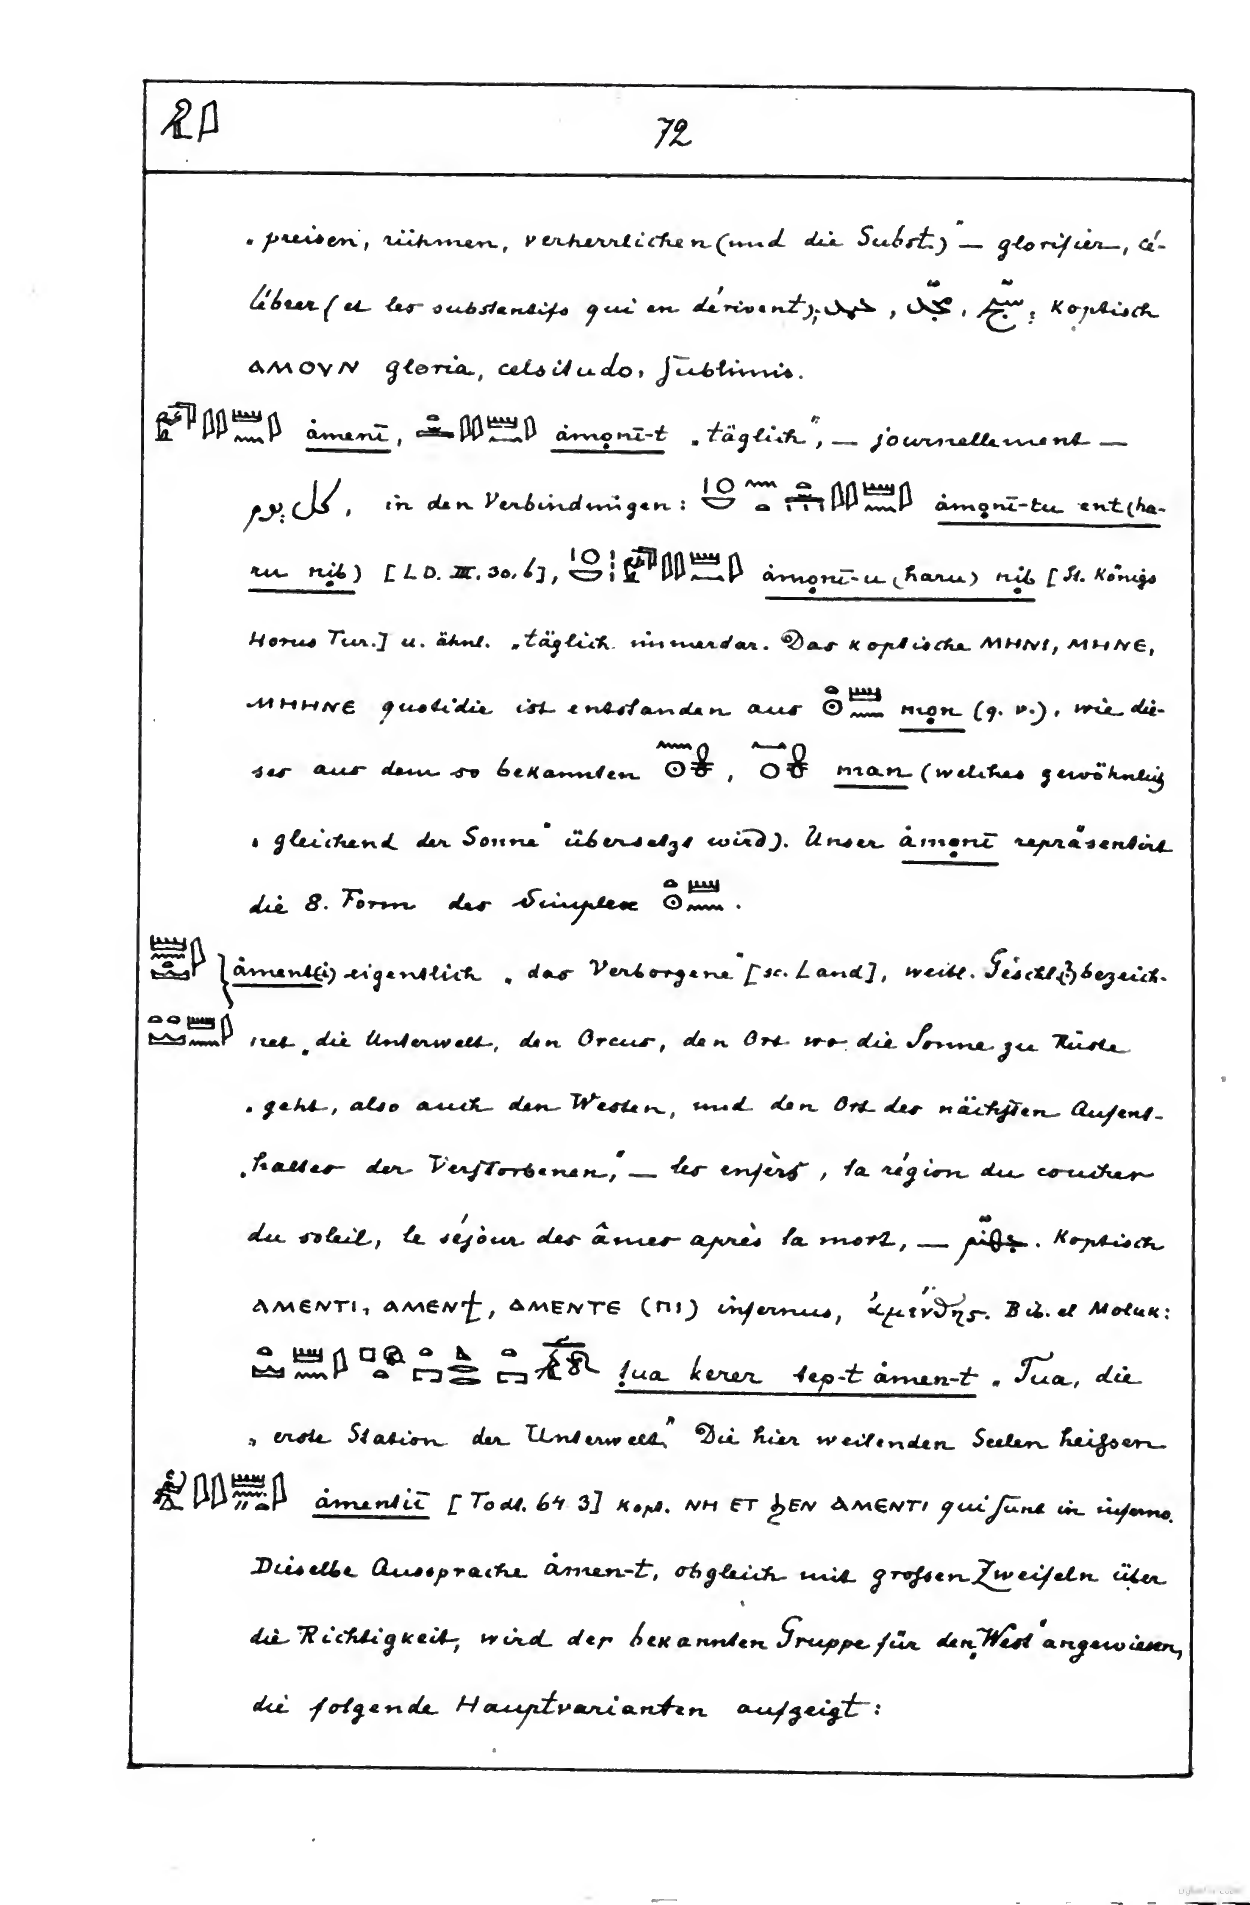 72
„preisen, rühmen, verherrlichen (und die Subst.)“ — glorifier, cé-
lébrer (et les substantifs qui en dérivent); حمد, مجّد, سبّح; Koptisch
ⲁⲙⲟⲩⲛ gloria, celsitudo, sublimis.
ȧmenī, ȧmọnī-t „täglich“, — journellement —
كل يوم, in den Verbindungen: ȧmọnī-tu ent (ha-
ru nib) [LD. III. 30. b], ȧmọnī-u (haru) nib [St. Königs
Horus Tur.] u. ähnl. „täglich immerdar. Das koptische ⲙⲏⲛⲓ, ⲙⲏⲛⲉ,
ⲙⲏⲏⲛⲉ quotidie ist entstanden aus mọn (q. v.), wie die-
ses aus dem so bekannten , man (welches gewöhnlich
„gleichend der Sonne“ übersetzt wird). Unser ȧmọnī repräsentirt
die 8. Form des Simplex .
ȧment(i) eigentlich „das Verborgene“ [sc. Land], weibl. Geschl. bezeich-
net „die Unterwelt, den Orcus, den Ort wo die Sonne zu Rüste
„geht, also auch den Westen, und den Ort des nächsten Aufent-
„haltes der Verstorbenen,“ — les enfers, la région du coucher
du soleil, le séjour des âmes après la mort, — جهنّم. Koptisch
ⲁⲙⲉⲛⲧⲓ, ⲁⲙⲉⲛϯ, ⲁⲙⲉⲛⲧⲉ (ⲡⲓ) infernus, ἀμένθης. Bib. el Moluk:
ṭua kerer tep-t ȧmen-t „Tua, die
„erste Station der Unterwelt.“ Die hier weilenden Seelen heissen
ȧmentiī [Todt. 64. 3] kopt. ⲛⲏ ⲉⲧ ϧⲉⲛ ⲁⲙⲉⲛⲧⲓ qui sunt in inferno.
Dieselbe Aussprache ȧmen-t, obgleich mit grossen Zweifeln über
die Richtigkeit, wird der bekannten Gruppe für den „West“ angewiesen,
die folgende Hauptvarianten aufzeigt: